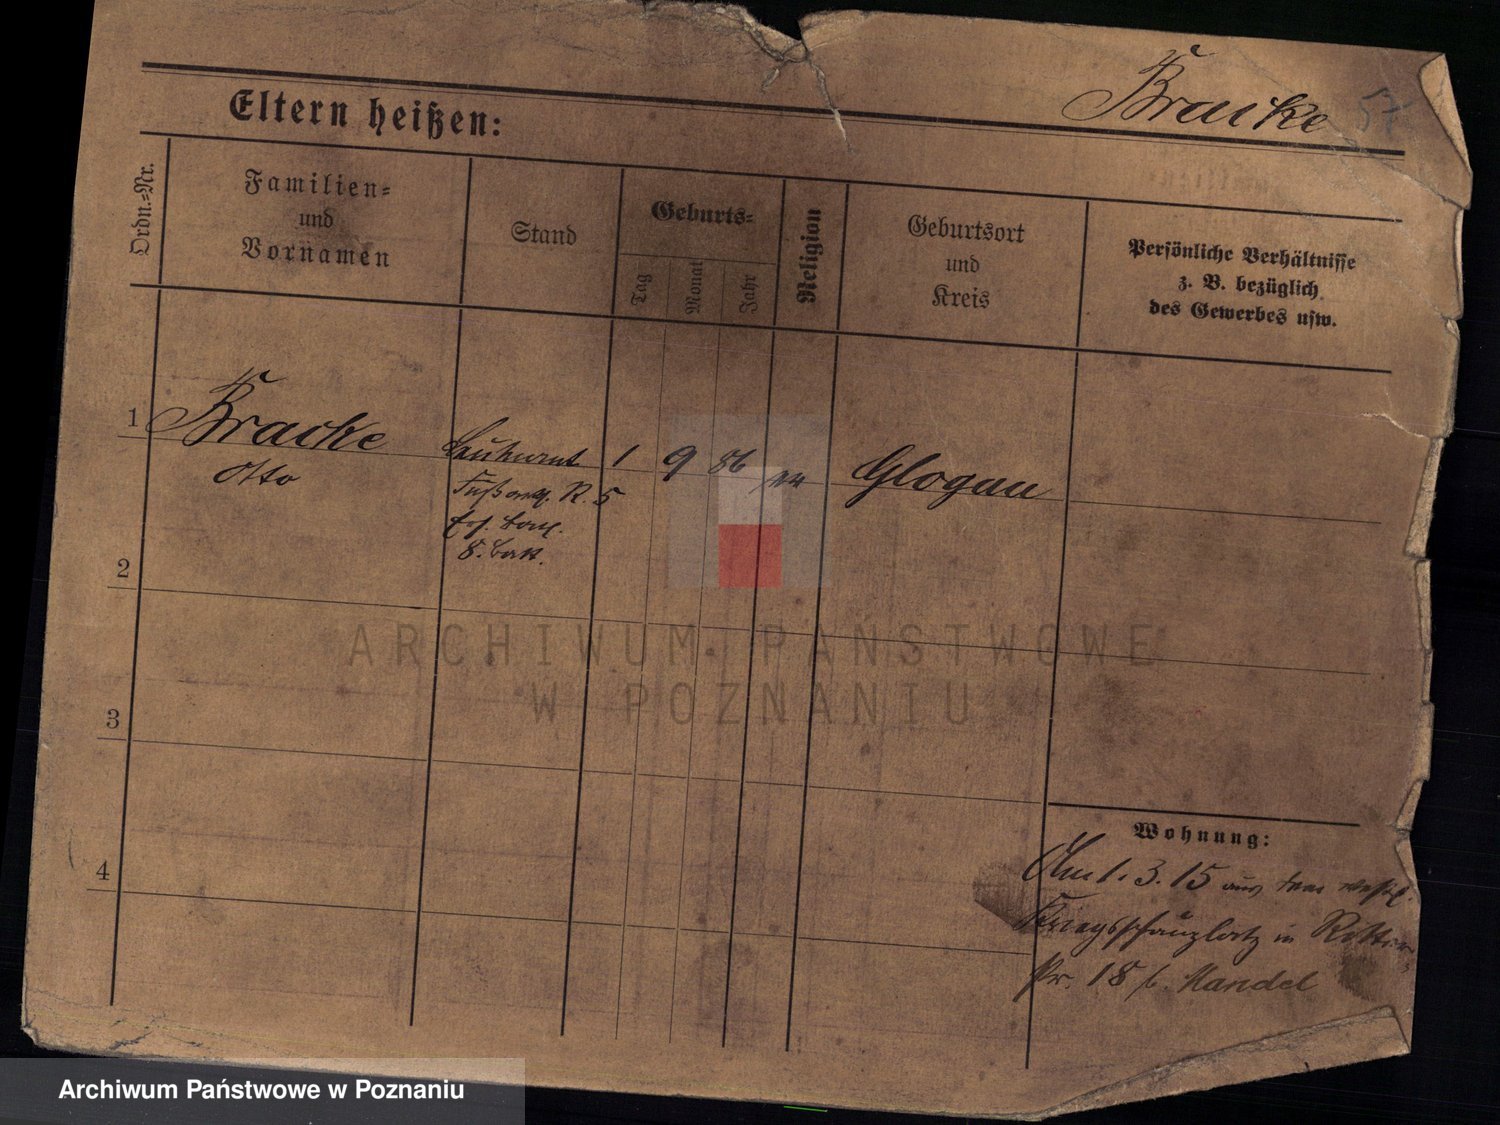 Bracke 54
Eltern heißen:
Ordn.-Nr.
Familien-
und
Vornamen
Stand
Geburts-
Tag
Monat
Jahr
Religion
Geburtsort
und
Kreis
Persönliche Verhältnisse
z. B. bezüglich
des Gewerbes usw.
1
Bracke
Otto
Leutnant
Fußart. R. 5
8. Batt.
1 9 86
Glogau
2
3
4
Wohnung:
Am 1. 3. 15 aus dem westl.
Kriegsschauplatz in
18 b. Mandel
ARCHIWUM PAŃSTWOWE
W POZNANIU
Archiwum Państwowe w Poznaniu